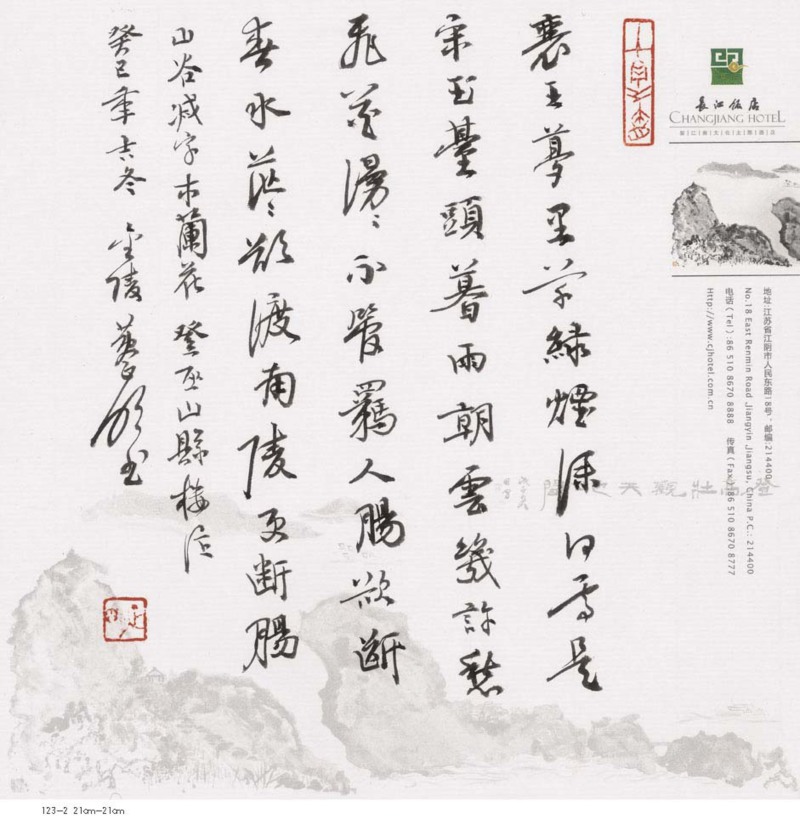 長江飯店
CHANGJIANG HOTEL
地址:江苏省江阴市人民东路18号·邮编:214400
No.18 East Renmin Road Jiangyin Jiangsu, China P.C.: 214400
电话(Tel):86 510 8670 8888 传真(Fax):86 510 8670 8777
Http://www.cjhotel.com.cn
登高壯觀天地間
襄王夢里草綠煙深何處是
宋玉臺頭暮雨朝雲幾許愁
飛花漫〻不管羈人腸欲斷
春水茫〻欲渡南陵更斷腸
山谷減字木蘭花 登巫山縣樓作
癸巳年吉冬 金陵 書
123-2 21cm-21cm